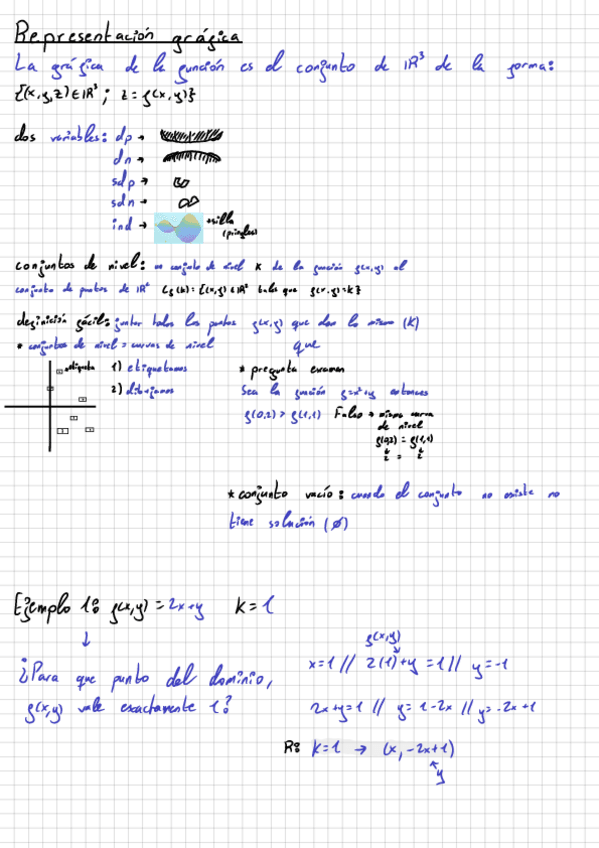 Representación gráfica
La gráfica de la función es el conjunto de IR³ de la forma:
{(x,y,z) ∈ IR³ ; z = f(x,y)}
dos variables: dp →
dn →
sdp →
sdn →
ind → → silla
(pringles)
conjuntos de nivel: un conjunto de nivel K de la función f(x,y) al
conjunto de puntos de IR² Cf(k) = {(x,y) ∈ IR² tales que f(x,y)=k}
definición fácil: juntar todos los puntos f(x,y) que dan lo mismo (K)
* conjuntos de nivel = curvas de nivel que
→ etiqueta 1) etiquetamos * pregunta examen
2) dibujamos Sea la función f=x²+y entonces
f(0,2) > f(1,1) Falso → misma curva
de nivel
f(0,2) = f(1,1)
2 = 2
* conjunto vacío: cuando el conjunto no existe no
tiene solución (∅)
Ejemplo 1: f(x,y) = 2x+y K=1
↓
f(x,y)
¿Para que punto del dominio, x=1 // 2(1)+y =1 // y=-1
f(x,y) vale exactamente 1? 2x+y=1 // y=1-2x // y=-2x+1
R: K=1 → (x,-2x+1)
y